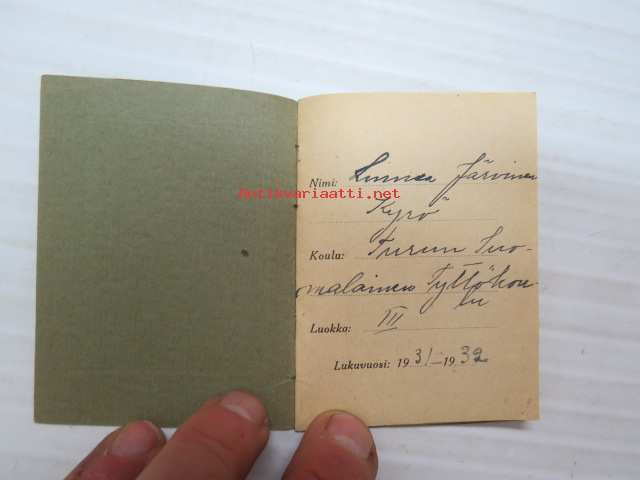 Nimi: Linnea Järvinen
Antikvariaatti.net
Kyrö
Koulu: Turun Suo-
malainen Tyttökou-
lu
Luokka: III
Lukuvuosi: 1931-1932